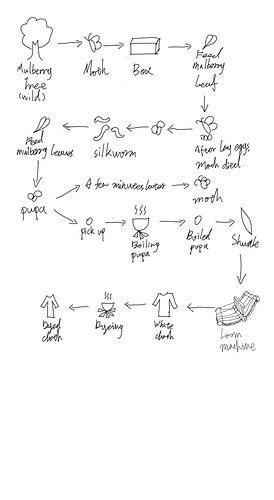 Mulberry
tree
(wild)
Moth
Box
Feed
mulberry
leaf
Feed
mulberry leaves
silkworm
After lay eggs,
moth died.
pupa
A few minutes later
moth
pick up
Boiling
pupa
Boiled
pupa
Shuttle
Dyed
cloth
Dyeing
White
cloth
Loom
machine